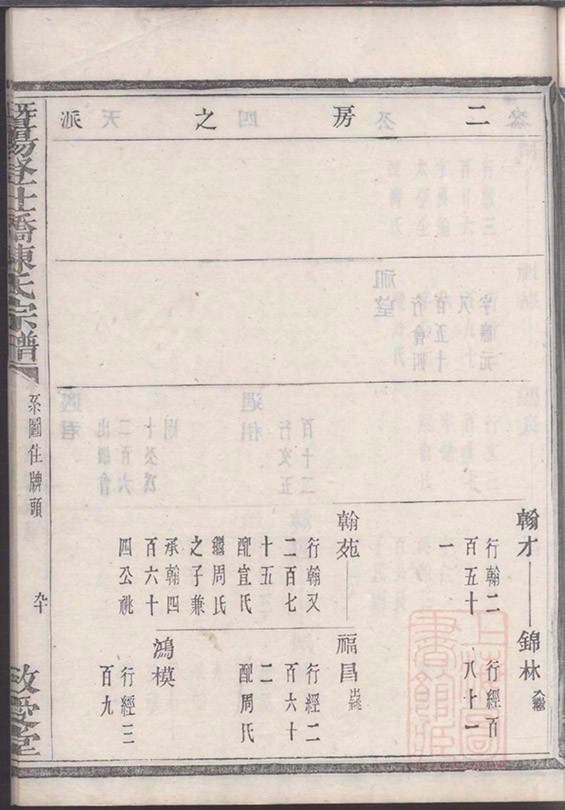 二房之派
翰才
行翰二
百五十
一
錦林
行經百
八十一
翰苑
行翰又
二百七
十五
配宣氏
繼周氏
之子兼
承翰四
百六十
四公祧
福昌
行經二
百六十
二
配周氏
鴻模
行經三
百九
暨陽登仕橋陳氏宗譜
系圖住牌頭
敬愛堂
上海圖
書館藏